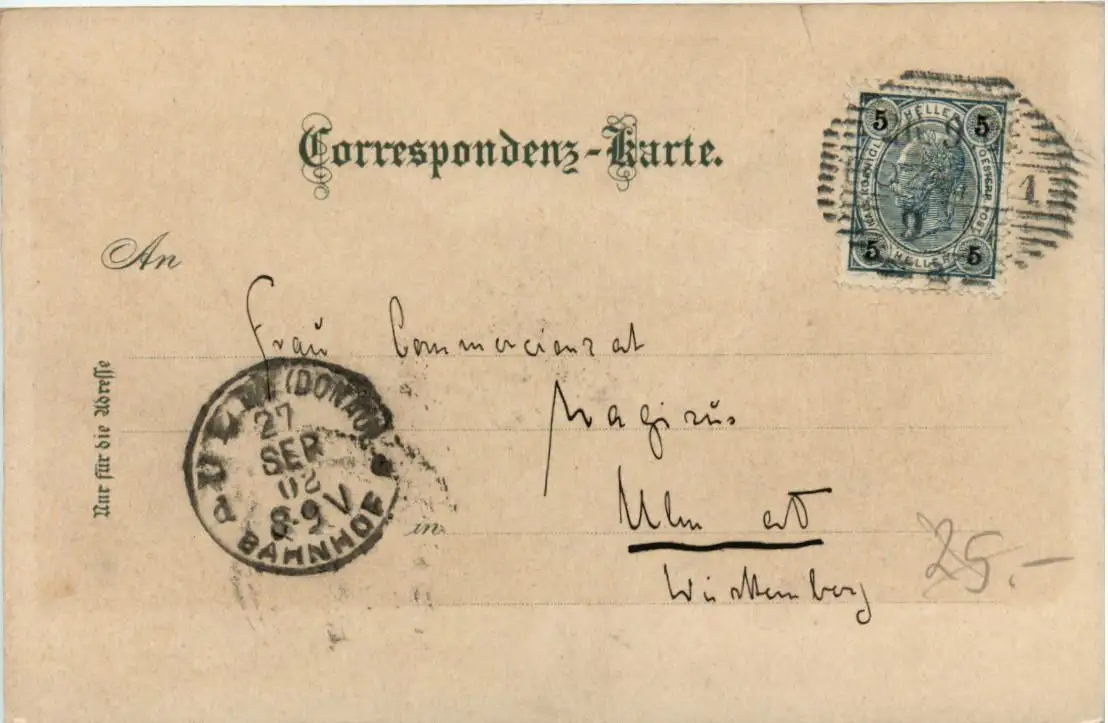 Correspondenz-Karte.
5 HELLER 5
KAIS. KOENIGL. OESTERR. POST
5 HELLER 5
1
An
Frau Commercienrat
Magirus
Ulm a/D
Württemberg
in
Nur für die Adresse
ULM (DONAU)
27
SEP
02
8-9 V
BAHNHOF
25.-